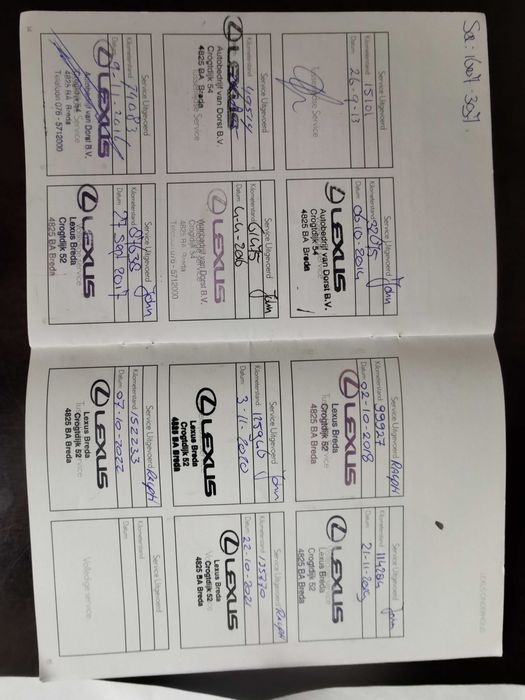 Service Uitgevoerd
Kilometerstand 15101
Datum 26-9-13
Service Uitgevoerd
Kilometerstand 32015 John
Datum 06-10-2014
LEXUS
Autobedrijf van Dorst B.V.
Crogtdijk 54
4825 BA Breda
Service Uitgevoerd
Kilometerstand
Datum
LEXUS
Autobedrijf van Dorst B.V.
Crogtdijk 54
4825 BA Breda
Service Uitgevoerd
Kilometerstand 61475 John
Datum 4-4-2016
LEXUS
Autobedrijf van Dorst B.V.
Crogtdijk 54
4825 BA Breda
Telefoon 076 - 5712000
Service Uitgevoerd
Kilometerstand 71083
Datum 9-11-2016
LEXUS
Autobedrijf van Dorst B.V.
Crogtdijk 54
4825 BA Breda
Telefoon 076 - 5712000
Service Uitgevoerd
Kilometerstand John
Datum 27 Sep 2017
LEXUS
Lexus Breda
Crogtdijk 52
4825 BA Breda
Service Uitgevoerd Ralph
Kilometerstand 99927
Datum 02-10-2018
LEXUS
Lexus Breda
Crogtdijk 52
4825 BA Breda
Service Uitgevoerd John
Kilometerstand 114264
Datum 21-11-2019
LEXUS
Lexus Breda
Crogtdijk 52
4825 BA Breda
Service Uitgevoerd John
Kilometerstand 125946
Datum 3-11-2020
LEXUS
Lexus Breda
Crogtdijk 52
4825 BA Breda
Service Uitgevoerd Ralph
Kilometerstand 135770
Datum 22-10-2021
LEXUS
Lexus Breda
Crogtdijk 52
4825 BA Breda
Service Uitgevoerd Ralph
Kilometerstand 155233
Datum 07-10-2022
LEXUS
Lexus Breda
Crogtdijk 52
4825 BA Breda
Service Uitgevoerd
Kilometerstand
Datum
Volledige service